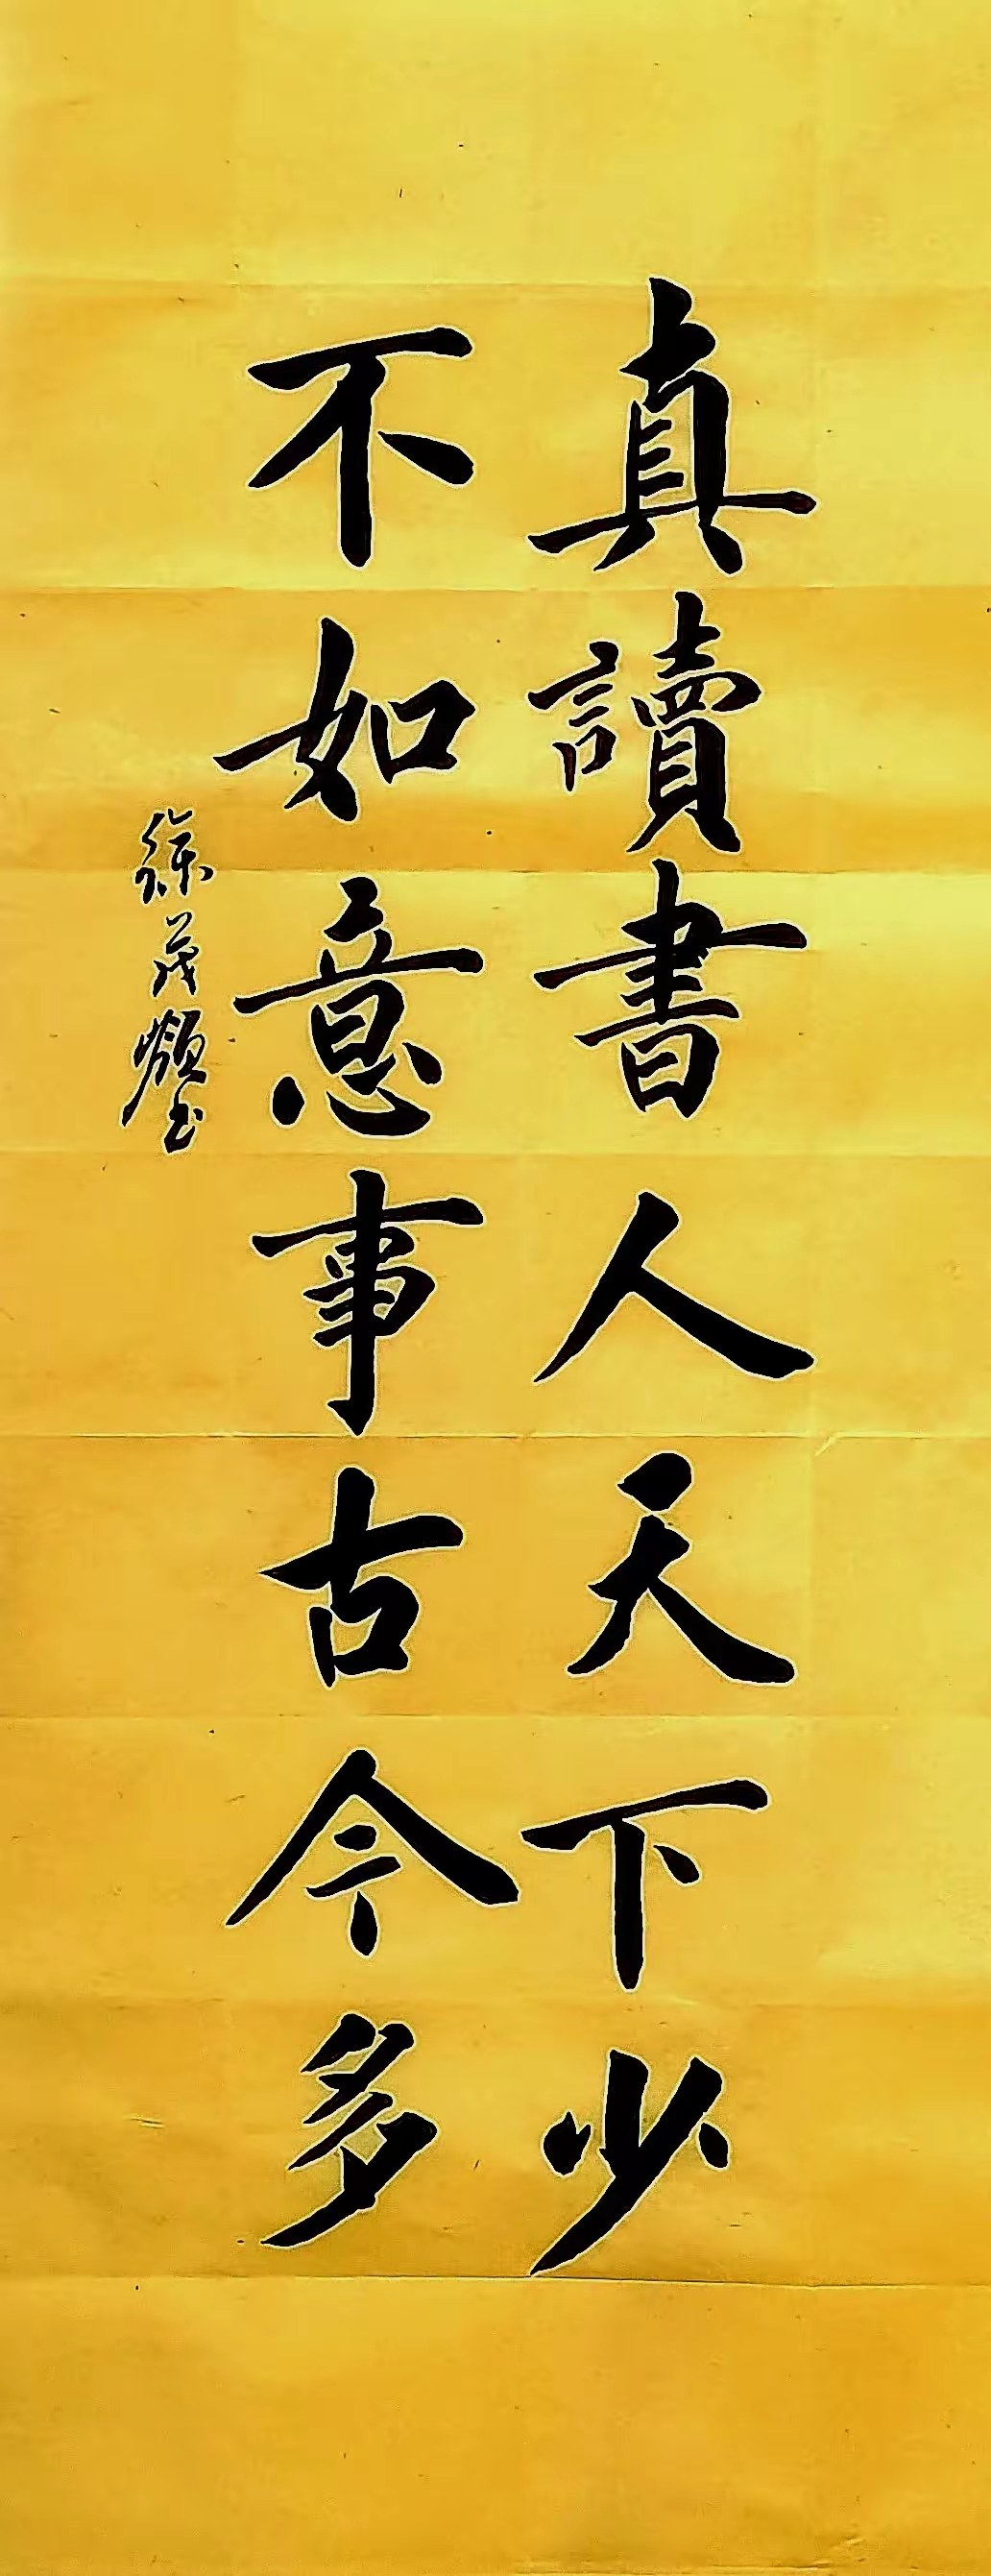 真讀書人天下少
不如意事古今多
徐茂